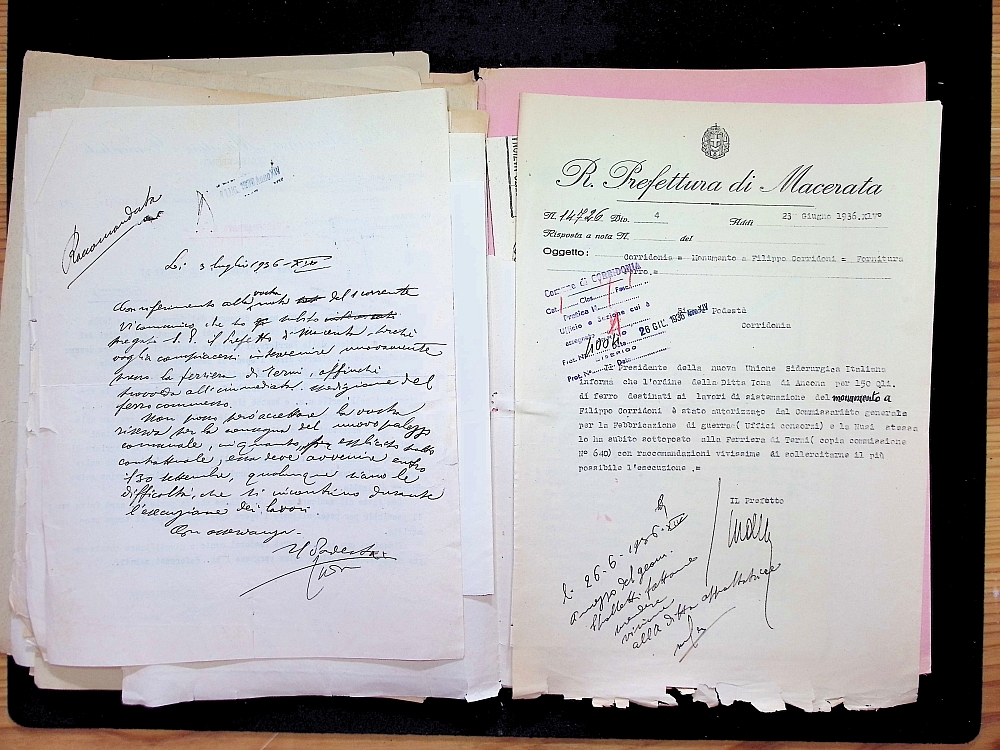 Raccomandata
Li 3 luglio 1936-XIV
Con riferimento alla vostra nota del 1 corrente
Vi comunico che ho subito
pregato S.E. il Prefetto di Macerata perchè
voglia compiacersi intervenire nuovamente
presso la ferriera di Terni, affinchè
provveda all'immediata spedizione del
ferro commesso.
Non posso però accettare la vostra
riserva per la consegna del nuovo palazzo
comunale, in quanto, per esplicito patto
contrattuale, essa deve avvenire entro
il 30 settembre, qualunque siano le
difficoltà, che si incontrino durante
l'esecuzione dei lavori.
Con osservanza.
Il Podestà
R. Prefettura di Macerata
N. 14726 Div. 4 Addì 23 Giugno 1936.XIV°
Risposta a nota N. del
Oggetto: Corridonia = Monumento a Filippo Corridoni = Fornitura
ferro.=
Comune di CORRIDONIA
Cat. Clas. Fasc.
Pratica N.
Ufficio o Sezione cui è
assegnato
26 GIU. 1936 Anno XIV
Prot. N. 4004
Prot. N. Data
Podestà
Corridonia
Il Presidente della nuova Unione Siderurgica Italiana
informa che l'ordine della Ditta Tona di Ancona per 150 Qli.
di ferro destinati ai lavori di sistemazione del monumento a
Filippo Corridoni è stato autorizzato dal Commissariato generale
per la Fabbricazione di guerra( Uffici consorzi) e la Nusi stessa
lo ha subito sottoposto alla Ferriera di Terni ( copia commissione
N° 640) con raccomandazioni vivissime di sollecitarne il più
possibile l'esecuzione .=
IL Prefetto
li 26-6-1936-XIV
A mezzo del geom.
prendere
visione
alla ditta appaltatrice